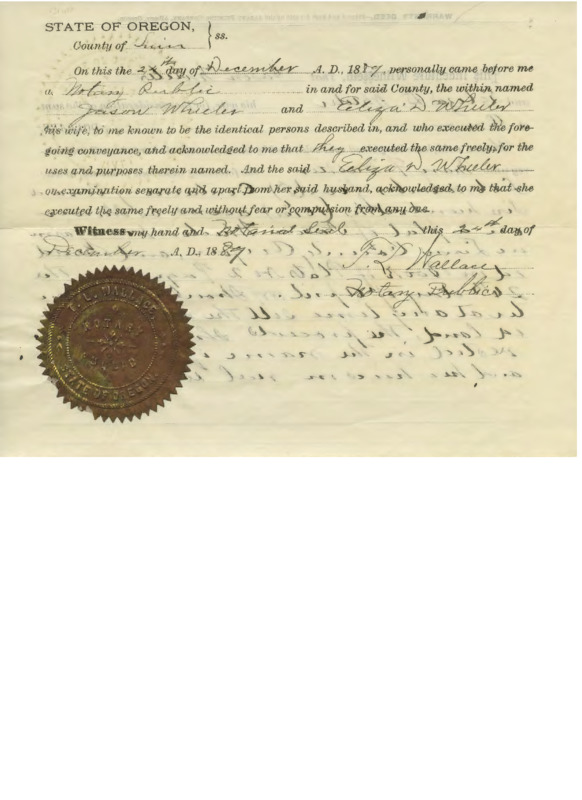 STATE OF OREGON,
County of Linn } ss.
On this the 24th day of December A. D., 1887, personally came before me
a Notary Public in and for said County, the within named
Jason Wheeler and Eeliza D. Wheeler
his wife, to me known to be the identical persons described in, and who executed the fore-
going conveyance, and acknowledged to me that they executed the same freely, for the
uses and purposes therein named. And the said Eeliza D. Wheeler
on examination separate and apart from her said husband, acknowledged to me that she
executed the same freely and without fear or compulsion from any one.
Witness my hand and Notarial Seal this 24th day of
December A. D., 1887.
T. L. Wallace
Notary Public
T. L. WALLACE
NOTARY
PUBLIC
STATE OF OREGON